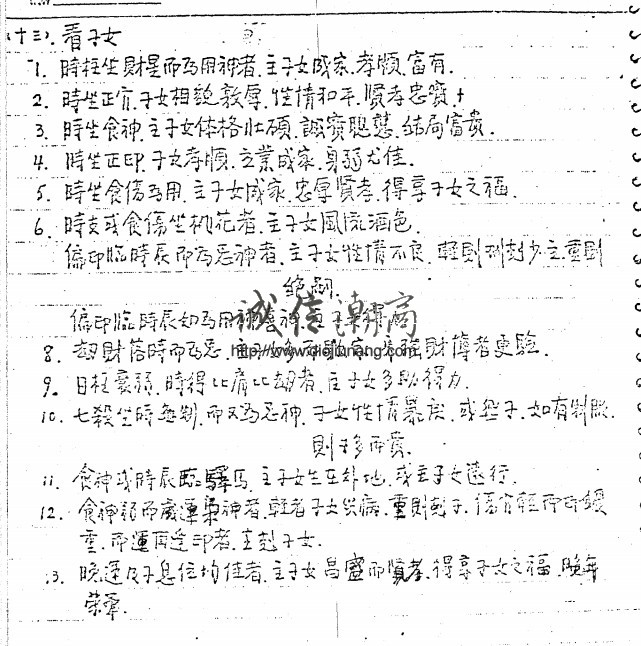 (十三).看子女
1. 時柱坐財星而為用神者.主子女成家.孝順.富有.
2. 時坐正官.子女相貌敦厚.性情和平.賢孝忠實.
3. 時坐食神.主子女体格壯碩.誠實聰慧.結局富貴.
4. 時坐正印.子女孝順.立業成家.身弱尤佳.
5. 時坐食傷為用.主子女成家.忠厚賢孝.得享子女之福.
6. 時支或食傷坐桃花者.主子女風流酒色.
偏印臨時辰而為忌神者.主子女性情不良.輕則刑剋少主重則
絕嗣.
偏印臨時辰如為用神
誠信潮商
http://www.qiejunang.com
8. 劫財落時而為忌.財傷者更驗.
9. 日柱衰弱.時得比肩比劫者.主子女多助得力.
10. 七殺坐時無制.而又為忌神.子女性情暴戾.或無子.如有制服
則多而貴.
11. 食神或時辰臨驛馬.主子女生在外地.或主子女遠行.
12. 食神弱而梟神者.輕者子女災病.重則剋子.傷官輕而印綬
重.而運再逢印者.主剋子女.
13. 晚運及子息位均佳者.主子女昌盛而賢孝.得享子女之福.晚年
榮華.